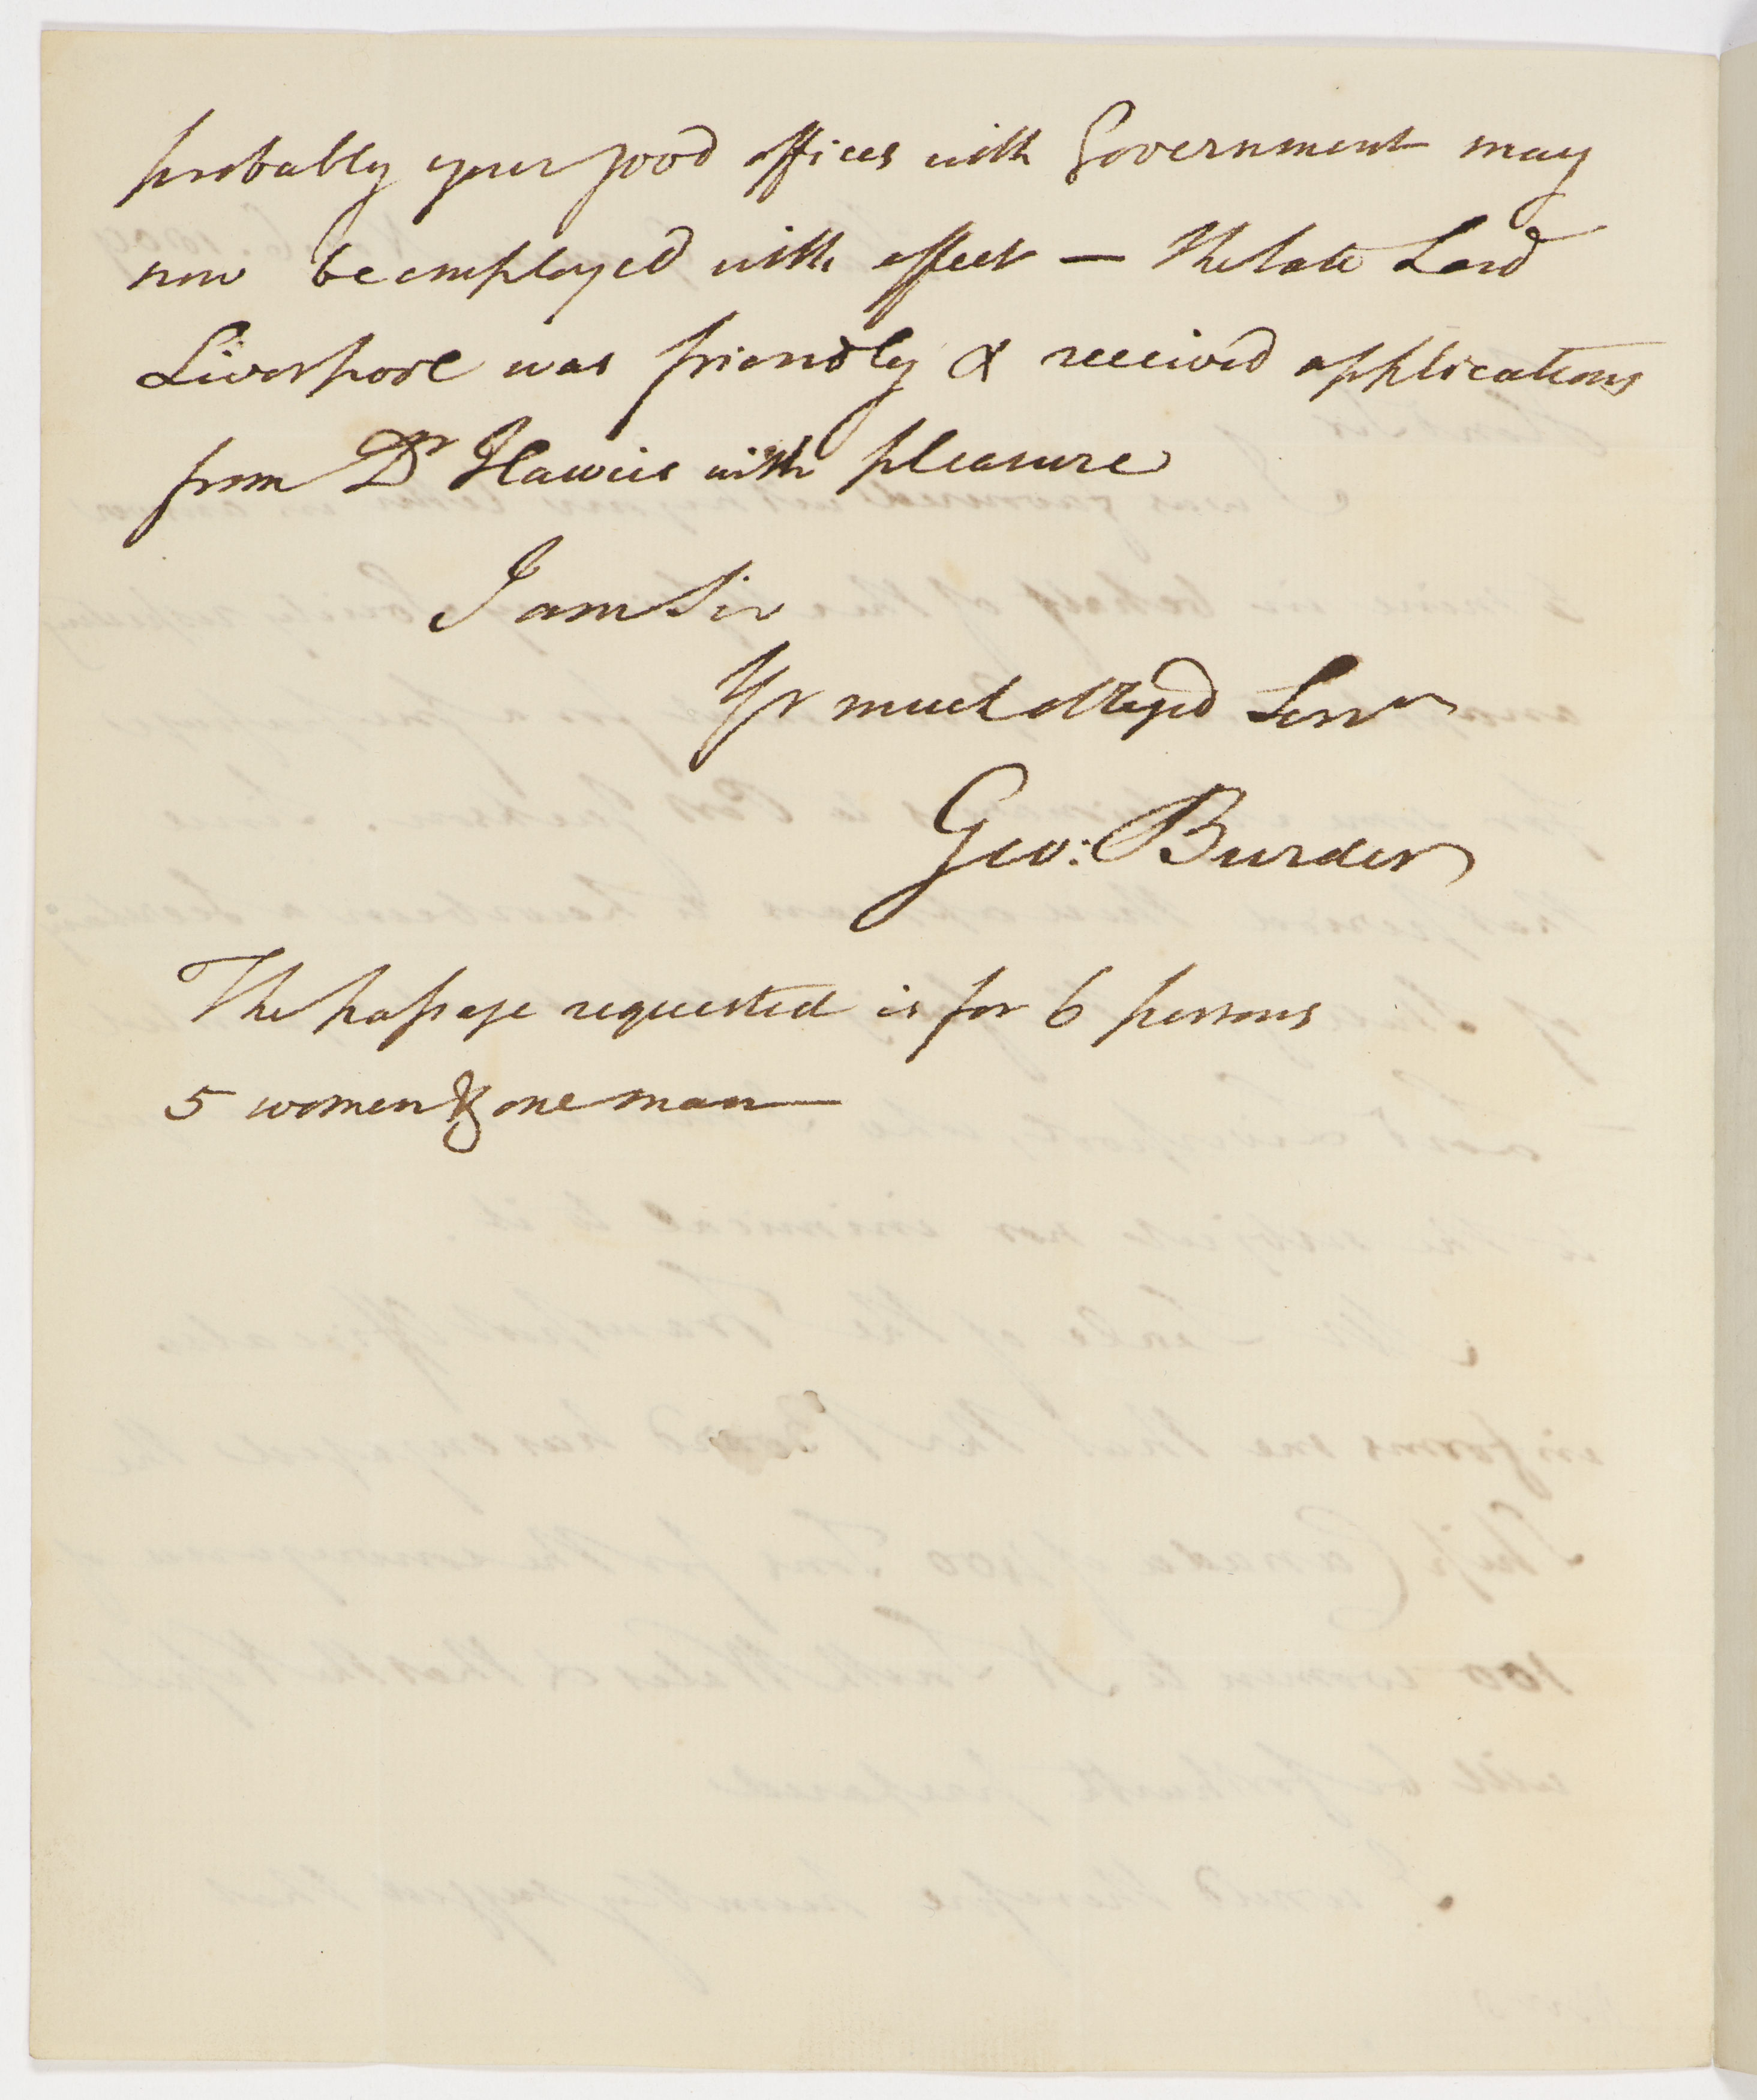 probably your good offices with Government may
now be employed with effect — The late Lord
Liverpool was friendly & received applications
from Dr Haweis with pleasure
I am Sir
Yr much obliged Servt
Geo: Burder
The passage requested is for 6 persons
5 women & one man —